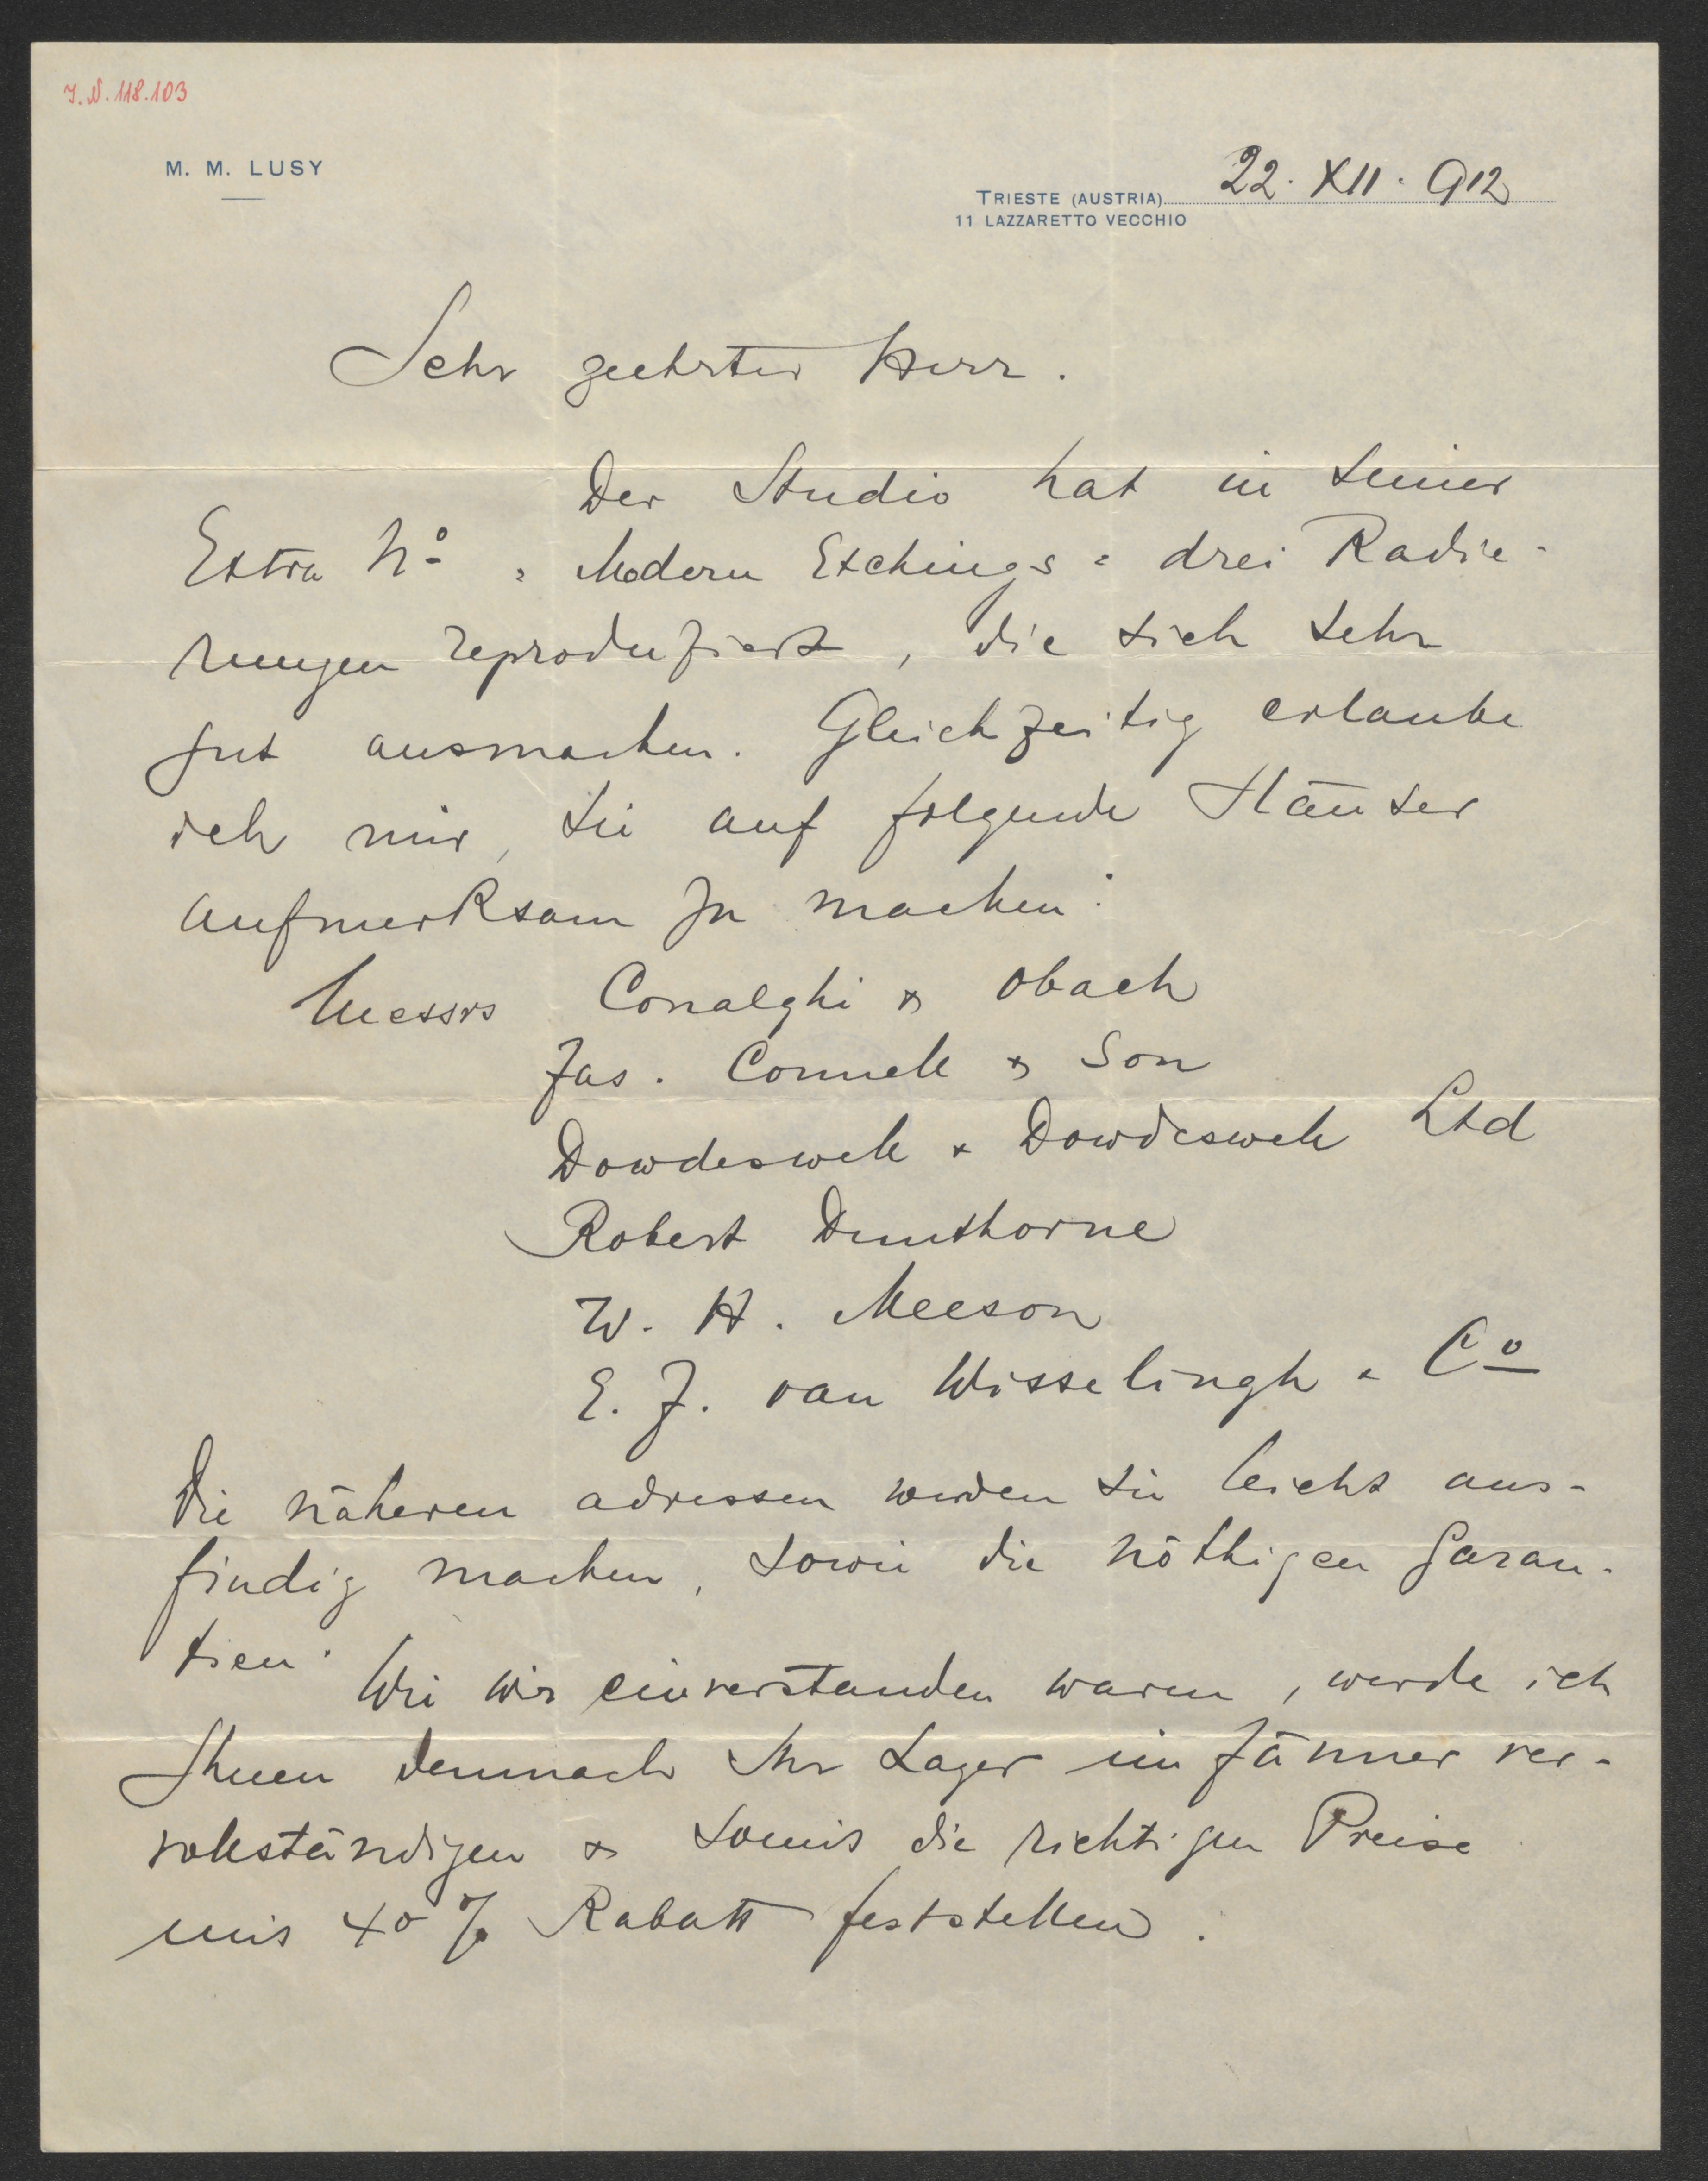 I.N. 118.103
M. M. LUSY
TRIESTE (AUSTRIA) 22. XII. 912
11 LAZZARETTO VECCHIO
Sehr geehrter Herr.
Der Studio hat in seiner
Extra No „Modern Etchings“ drei Radie-
rungen reproduziert, die sich sehr
gut ausmachen. Gleichzeitig erlaube
ich mir, Sie auf folgende Häuser
aufmerksam zu machen:
Messrs Conalghi & Obach
Jas. Connell & Son
Dowdeswell & Dowdeswell Ltd
Robert Dunthorne
W. H. Meeson
E. J. van Wisselingh & Co
Die näheren adressen werden Sie leicht aus-
findig machen, sowie die nöthigen Garan-
tien.
Wie wir einverstanden waren, werde ich
Ihnen demnach Ihr Lager im Jänner ver-
vollständigen & somit die richtigen Preise
mit 40% Rabatt feststellen.